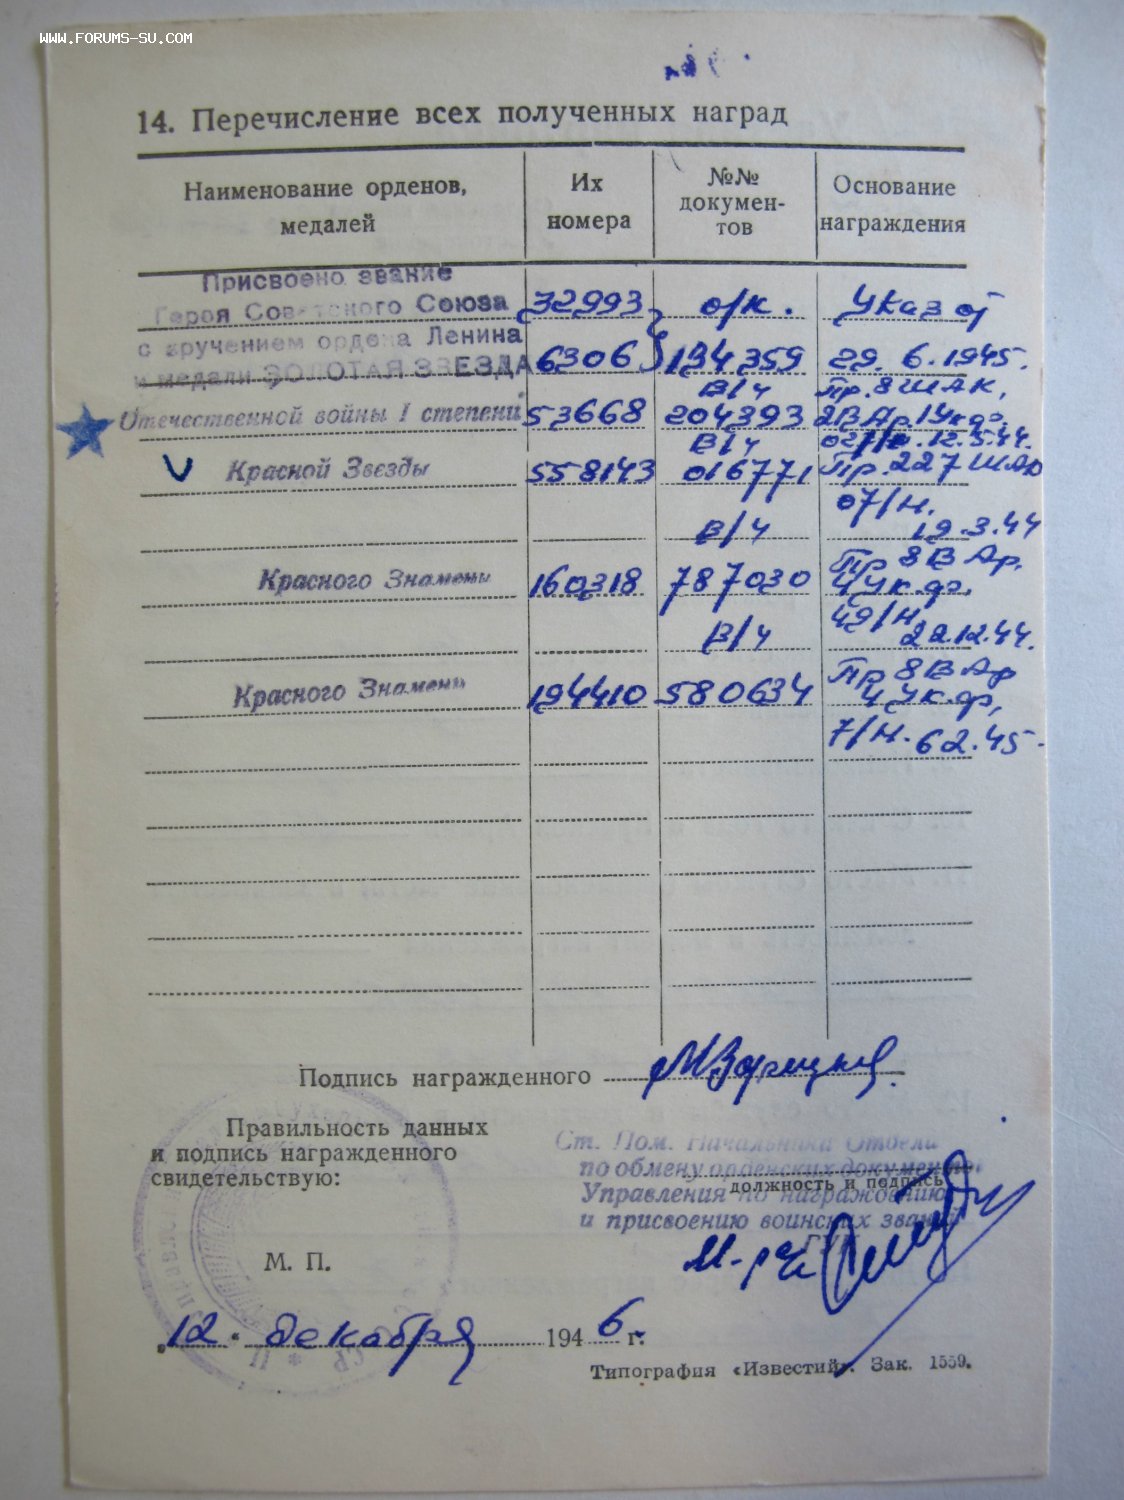 WWW.FORUMS-SU.COM
14. Перечисление всех полученных наград
Наименование орденов, медалей
Их номера
№№ докумен-тов
Основание награждения
Присвоено звание
Героя Советского Союза 32993 о/к. Указ от
с вручением ордена Ленина
и медали ЗОЛОТАЯ ЗВЕЗДА 6306 194359 29.6.1945.
В/ч Пр. 8 ШАК,
Отечественной войны I степени 53668 204393 2 В Ар. 1 Ук.фр.
В/ч 12.5.44.
Красной Звезды 558143 016771 Пр. 227 ШАД
07/н.
В/ч 19.3.44
Пр 8 В Ар.
Красного Знамени 160318 787030 4 Ук.фр.
49/н
В/ч 22.12.44.
Пр 8 В Ар
Красного Знамени 194410 580634 4 Ук.фр,
7/н. 6 2.45
Подпись награжденного
Правильность данных
и подпись награжденного
свидетельствую:
Ст. Пом. Начальника Отдела
по обмену орденских документов
должность и подпись
Управления по награждению
и присвоению воинских званий
М. П.
М-р
„12“ декабря 1946 г.
Типография «Известий». Зак. 1559.